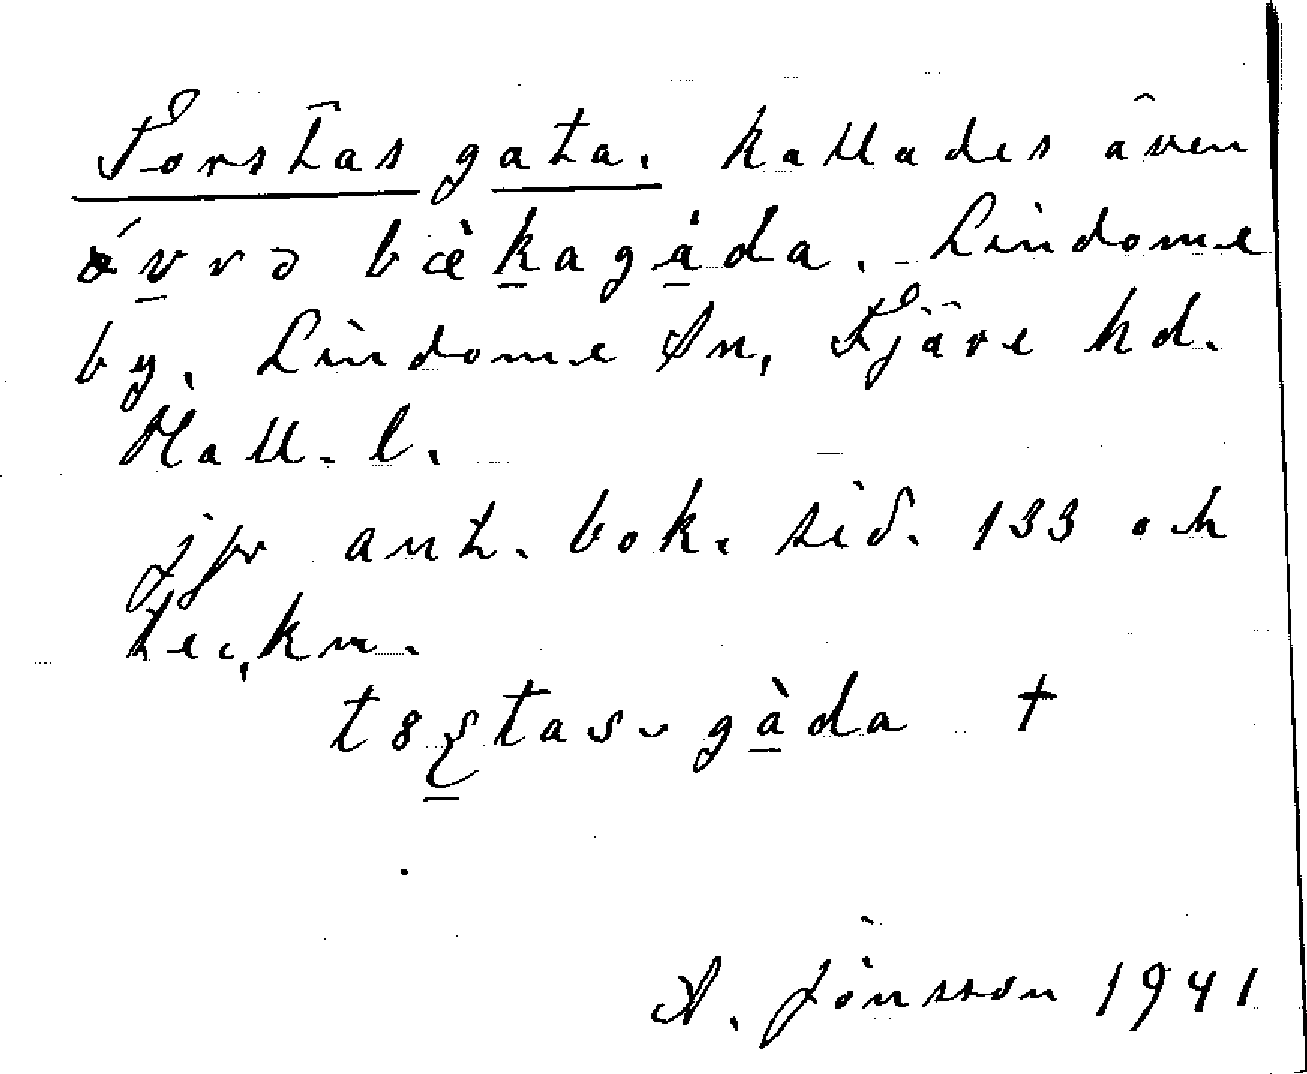 Torstas gata. kallades även
ǿvrə bæ̀kagàda. Lindome
by. Lindome Sn, Fjäre hd.
Hall. l.
jfr ant. bok. sid. 133 och
teckn.
tȣʂtas gàda †
A. Jönsson 1941